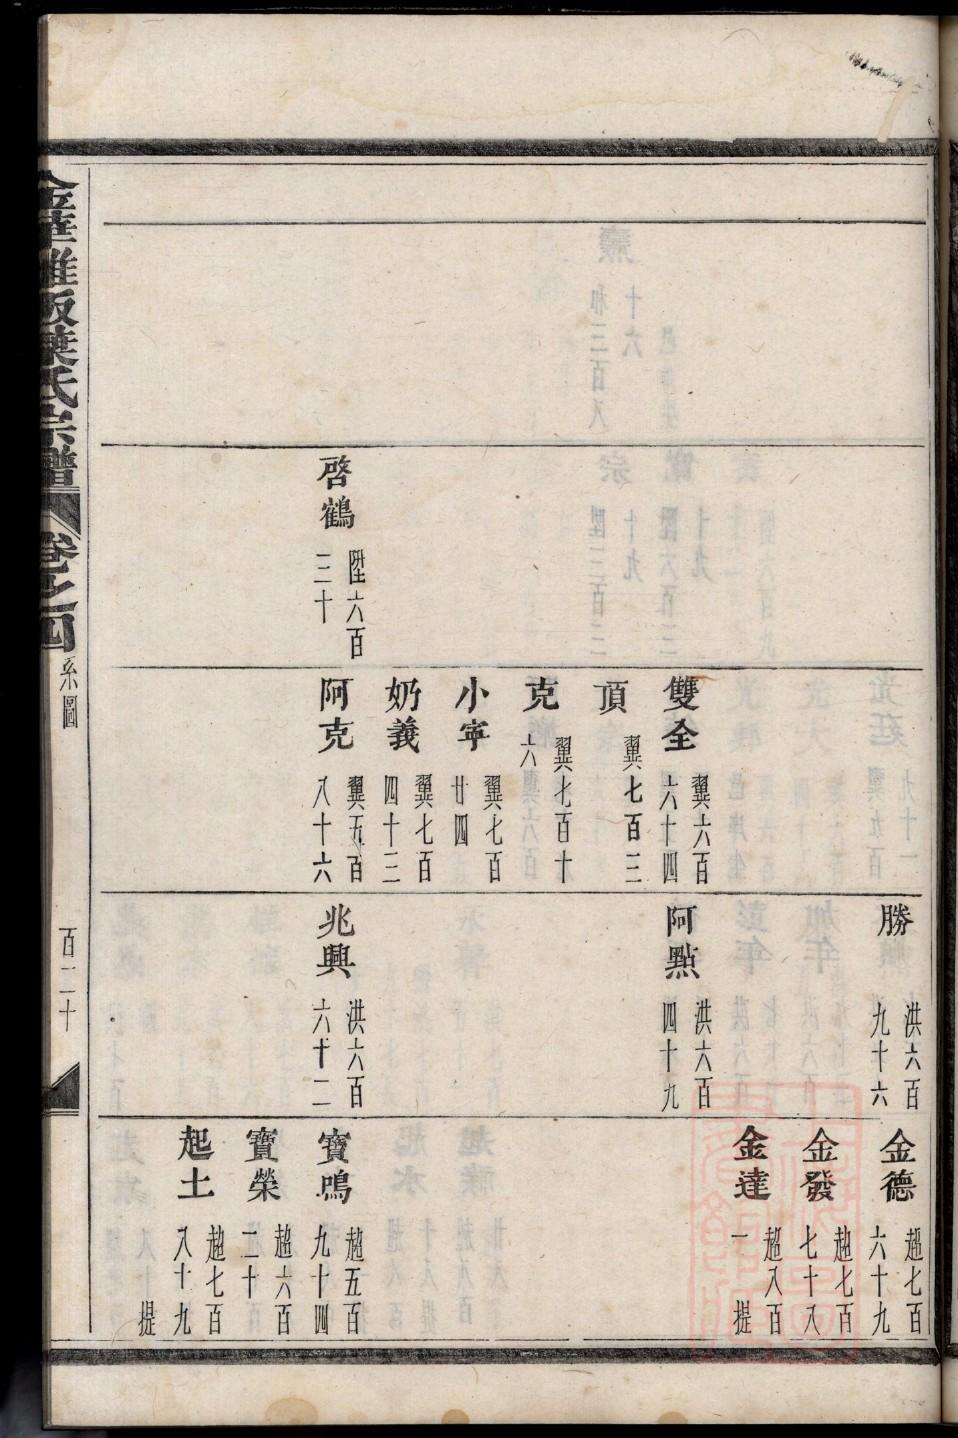 啓鶴 陞六百三十
雙全 翼六百六十四
頂 翼七百三
克 翼七百十六
小寜 翼七百廿四
奶義 翼七百四十三
阿克 翼五百八十六
勝 洪六百九十六
阿點 洪六百四十九
兆興 洪六百六十二
金德 趙七百六十九
金發 趙七百七十八
金達 趙八百一 提
寶鳴 趙五百九十四
寶榮 趙六百二十
起土 趙七百八十九 提
金華雅畈葉氏宗譜
卷之四
系圖
百二十